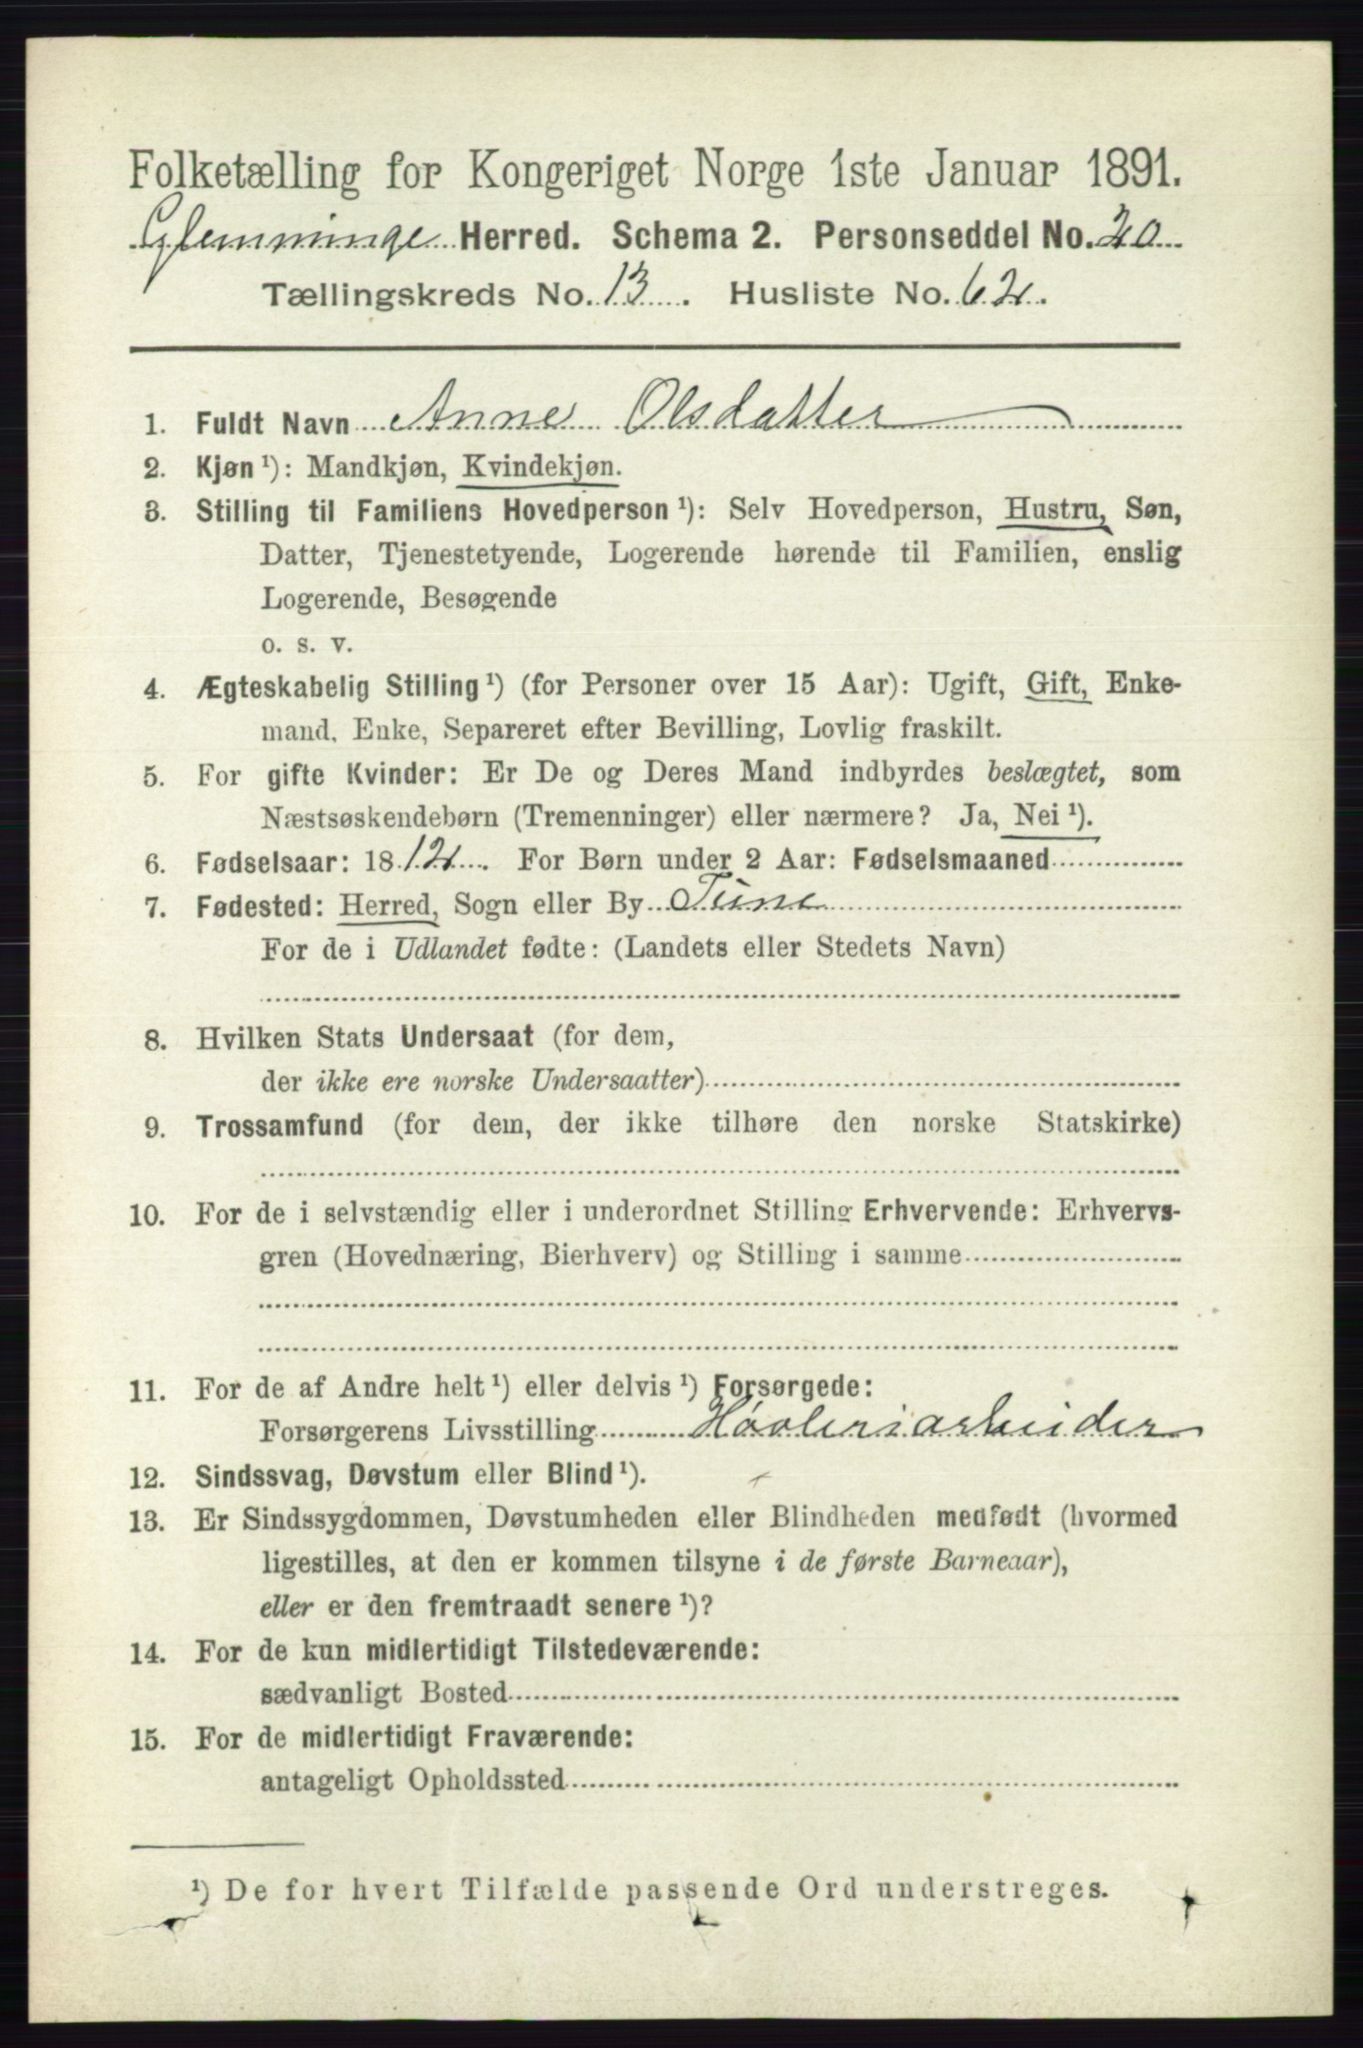 Folketælling for Kongeriget Norge 1ste Januar 1891.
Glemminge Herred. Schema 2. Personseddel No. 20
Tællingskreds No. 13. Husliste No. 62.
1. Fuldt Navn Anne Olsdatter
2. Kjøn ¹): Mandkjøn, Kvindekjøn.
3. Stilling til Familiens Hovedperson ¹): Selv Hovedperson, Hustru, Søn,
Datter, Tjenestetyende, Logerende hørende til Familien, enslig
Logerende, Besøgende
o. s. v.
4. Ægteskabelig Stilling ¹) (for Personer over 15 Aar): Ugift, Gift, Enke-
mand, Enke, Separeret efter Bevilling, Lovlig fraskilt.
5. For gifte Kvinder: Er De og Deres Mand indbyrdes beslægtet, som
Næstsøskendebørn (Tremenninger) eller nærmere? Ja, Nei ¹).
6. Fødselsaar: 1812. For Børn under 2 Aar: Fødselsmaaned
7. Fødested: Herred, Sogn eller By Tune
For de i Udlandet fødte: (Landets eller Stedets Navn)
8. Hvilken Stats Undersaat (for dem,
der ikke ere norske Undersaatter)
9. Trossamfund (for dem, der ikke tilhøre den norske Statskirke)
10. For de i selvstændig eller i underordnet Stilling Erhvervende: Erhvervs-
gren (Hovednæring, Bierhverv) og Stilling i samme
11. For de af Andre helt ¹) eller delvis ¹) Forsørgede:
Forsørgerens Livsstilling Høvleriarbeider
12. Sindssvag, Døvstum eller Blind ¹).
13. Er Sindssygdommen, Døvstumheden eller Blindheden medfødt (hvormed
ligestilles, at den er kommen tilsyne i de første Barneaar),
eller er den fremtraadt senere ¹)?
14. For de kun midlertidigt Tilstedeværende:
sædvanligt Bosted
15. For de midlertidigt Fraværende:
antageligt Opholdssted
¹) De for hvert Tilfælde passende Ord understreges.